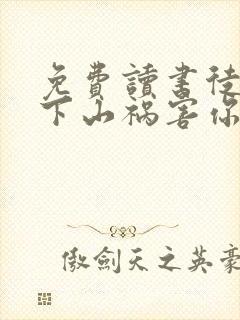 免費讀書徒
下山祸害你
傲劍天之英豪